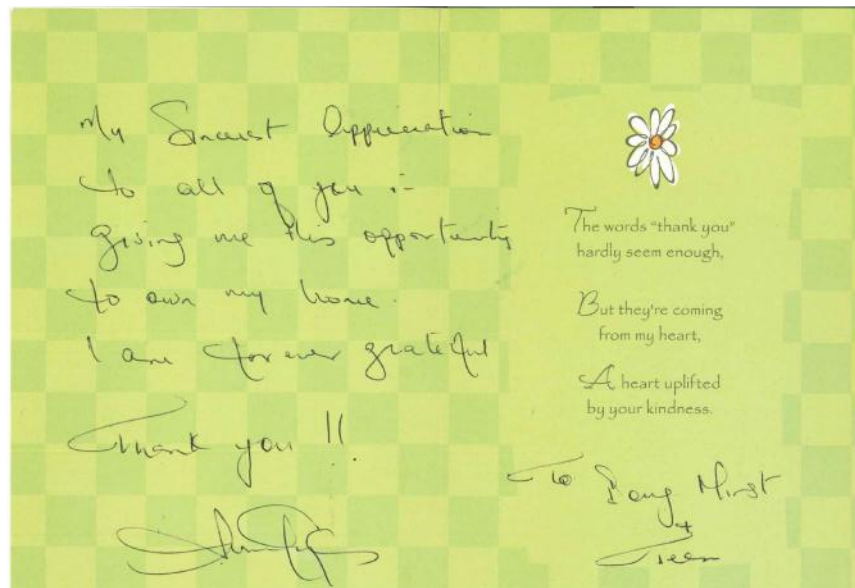 My Sincerest Appreciation
to all of you :-
giving me this opportunity
to own my home.
I am forever grateful
Thank you !!
The words "thank you"
hardly seem enough,
But they're coming
from my heart,
A heart uplifted
by your kindness.
To
+